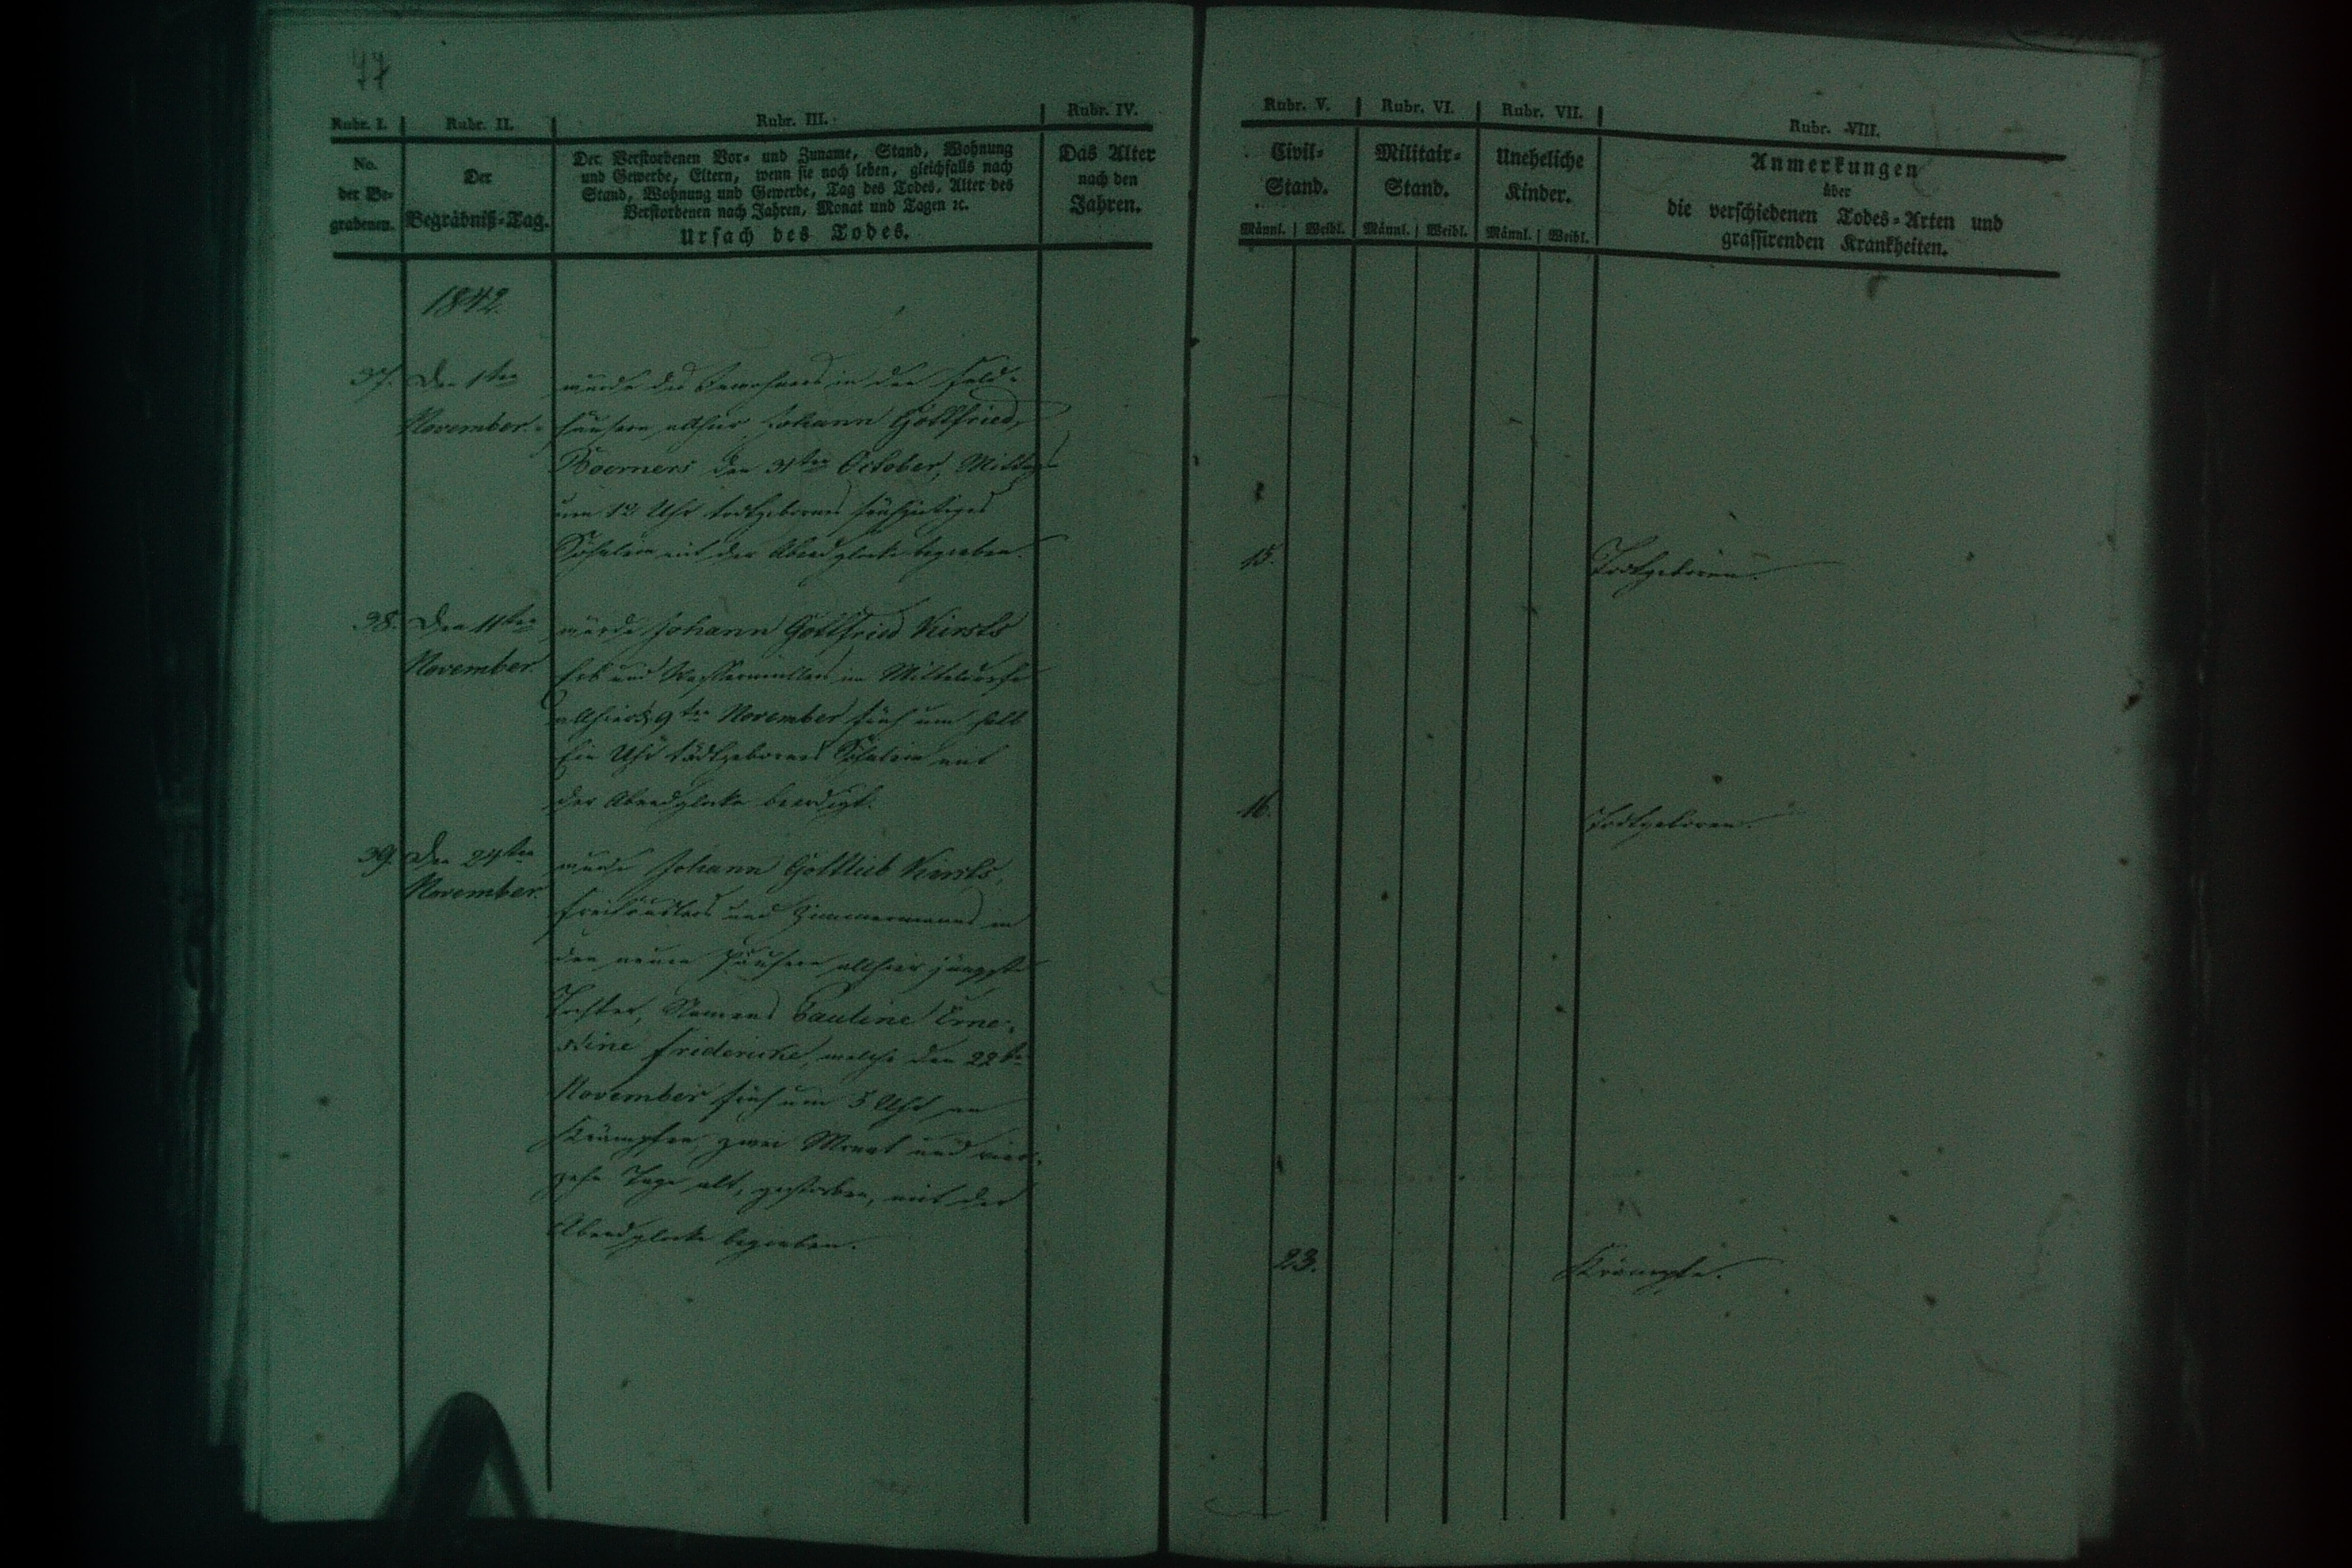 77
Rubr. I.
No.
der Be-
grabenen.
Rubr. II.
Der
Begräbniß-Tag.
Rubr. III.
Der Verstorbenen Vor- und Zuname, Stand, Wohnung
und Gewerbe, Eltern, wenn sie noch leben, gleichfalls nach
Stand, Wohnung und Gewerbe, Tag des Todes, Alter des
Verstorbenen nach Jahren, Monat und Tagen ꝛc.
Ursach des Todes.
Rubr. IV.
Das Alter
nach den
Jahren.
Rubr. V.
Civil-
Stand.
Männl. Weibl.
Rubr. VI.
Militair-
Stand.
Männl. Weibl.
Rubr. VII.
Uneheliche
Kinder.
Männl. Weibl.
Rubr. VIII.
Anmerkungen
über
die verschiedenen Todes-Arten und
grassirenden Krankheiten.
1842.
37. Den 1ten
November.
wurde des Inwohners in den Feld-
häusern allhier Johann Gottfried
Boerners den 31ten October, Mittags
um 12 Uhr todtgebornes frühzeitiges
Söhnlein mit der Abendglocke begraben.
15.
Todtgeboren.
38. Den 11ten
November.
wurde Johann Gottfried Kirsts
Erb und Wassermüllers im Mitteldorfe
allhier d. 9ten November früh um halb
Ein Uhr todtgebornes Söhnlein mit
der Abendglocke beerdigt.
16.
Todtgeboren.
39. Den 24ten
November.
wurde Johann Gottlieb Kirsts,
Freihäuslers und Zimmermanns in
den neuen Häusern allhier jüngste
Tochter, Namens Pauline Erne-
stine Fridericke, welche den 22ten
November früh um 5 Uhr an
Krämpfen, zwei Monat und vier-
zehn Tage alt, gestorben, mit der
Abendglocke begraben.
23.
Krämpfe.